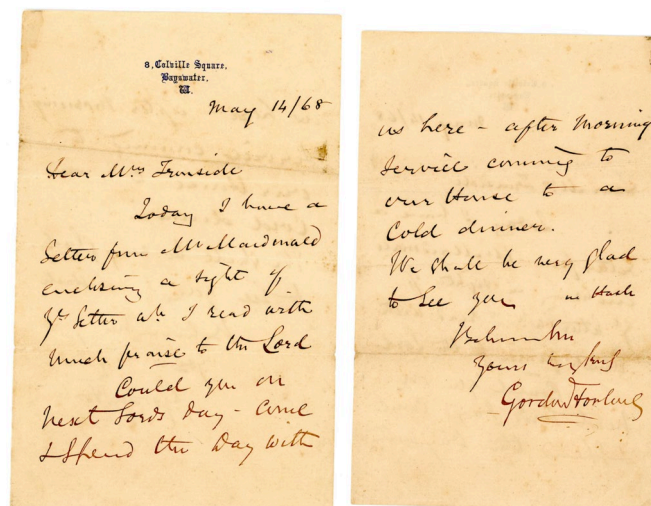 8, Colville Square,
Bayswater,
W.
May 14/68
Dear Mrs Ironside
Today I have a
Letter from Mr Macdonald
enclosing a sight of
yr Letter wh I read with
much praise to the Lord
Could you on
next Lords day - come
& Spend the Day with
us here - after Morning
Service coming to
our House to a
Cold dinner.
We shall be very glad
to See you in Haste
Yours
Gordon Forlong